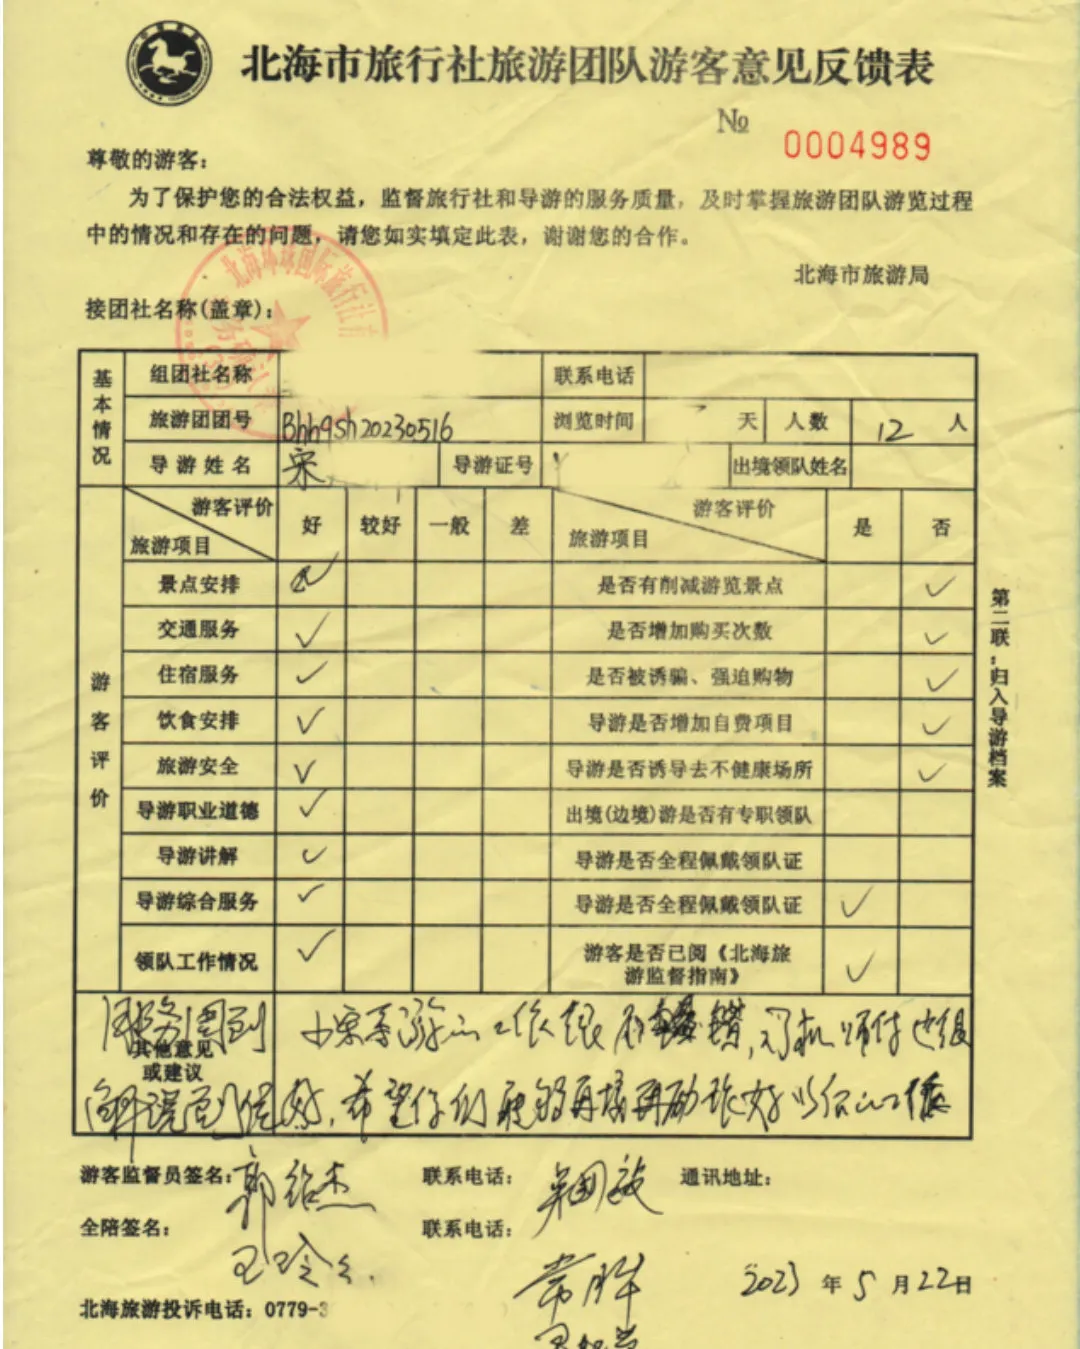 北海市旅行社旅游团队游客意见反馈表
№ 0004989
尊敬的游客：
为了保护您的合法权益，监督旅行社和导游的服务质量，及时掌握旅游团队游览过程
中的情况和存在的问题，请您如实填定此表，谢谢您的合作。
北海市旅游局
接团社名称(盖章)：
基本情况
组团社名称 联系电话
旅游团团号 Bhhqsh20230516 浏览时间 天 人数 12 人
导游姓名 宋 导游证号 出境领队姓名
游客评价
游客评价 旅游项目 好 较好 一般 差 游客评价 旅游项目 是 否
景点安排 ✓ 是否有削减游览景点 ✓
交通服务 ✓ 是否增加购买次数 ✓
住宿服务 ✓ 是否被诱骗、强迫购物 ✓
饮食安排 ✓ 导游是否增加自费项目 ✓
旅游安全 ✓ 导游是否诱导去不健康场所 ✓
导游职业道德 ✓ 出境(边境)游是否有专职领队
导游讲解 ✓ 导游是否全程佩戴领队证
导游综合服务 ✓ 导游是否全程佩戴领队证 ✓
领队工作情况 ✓ 游客是否已阅《北海旅
游监督指南》 ✓
第二联：归入导游档案
其他意见
或建议
服务周到 小宋导游的工作很 司机师傅也很
好，希望你们能够再接再励做好以后的工作
游客监督员签名： 郭绍杰 联系电话： 通讯地址：
全陪签名： 联系电话：
常胜
2023 年 5 月 22 日
北海旅游投诉电话：0779-3